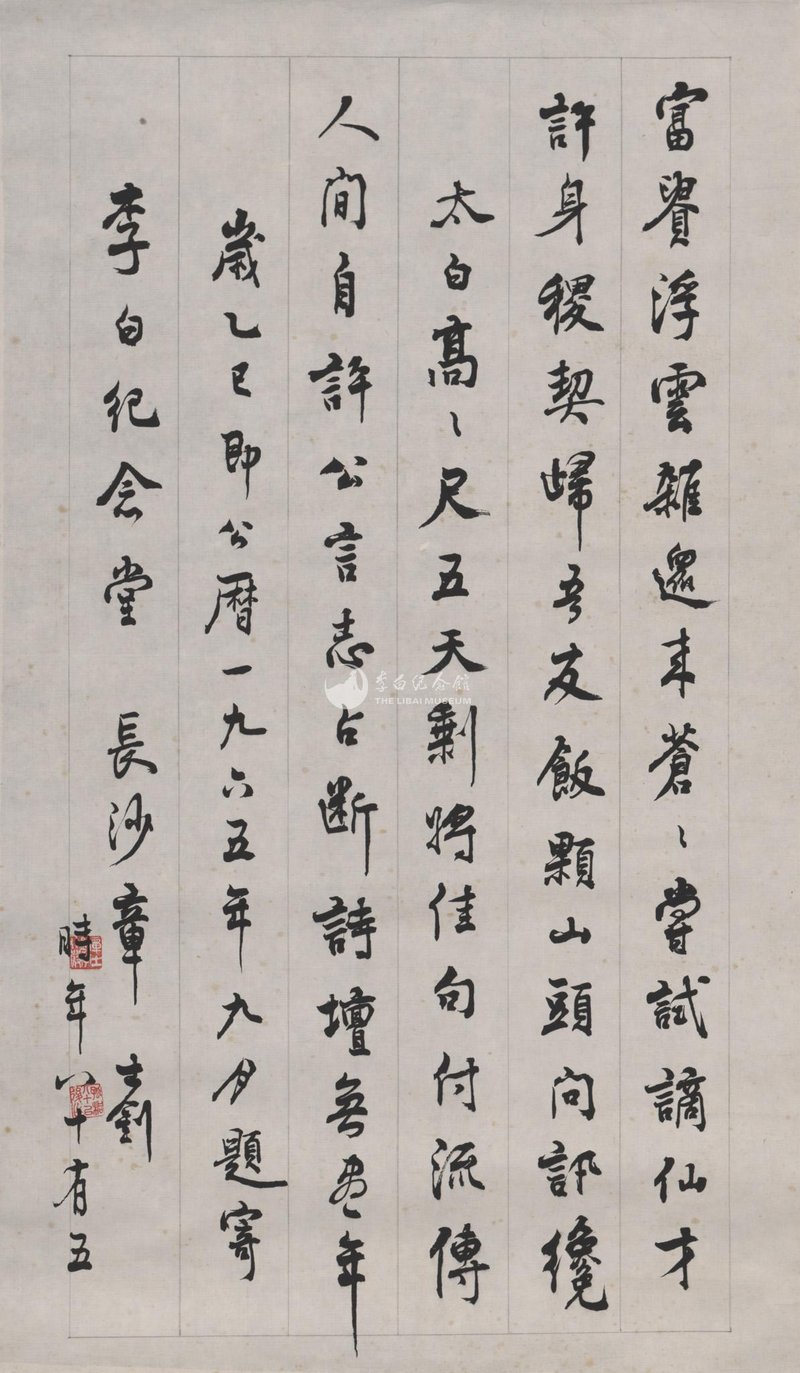 富貴浮雲雜遝来蒼〻嘗試謫仙才
許身稷契歸吾友飯顆山頭問訊纔
太白高〻尺五天剩將佳句付流傳
人間自許公言志占断詩壇無盡年
歲乙巳即公曆一九六五年九月題寄
李白紀念堂 長沙章士釗
時年八十有五
李白纪念館
THE LIBAI MUSEUM